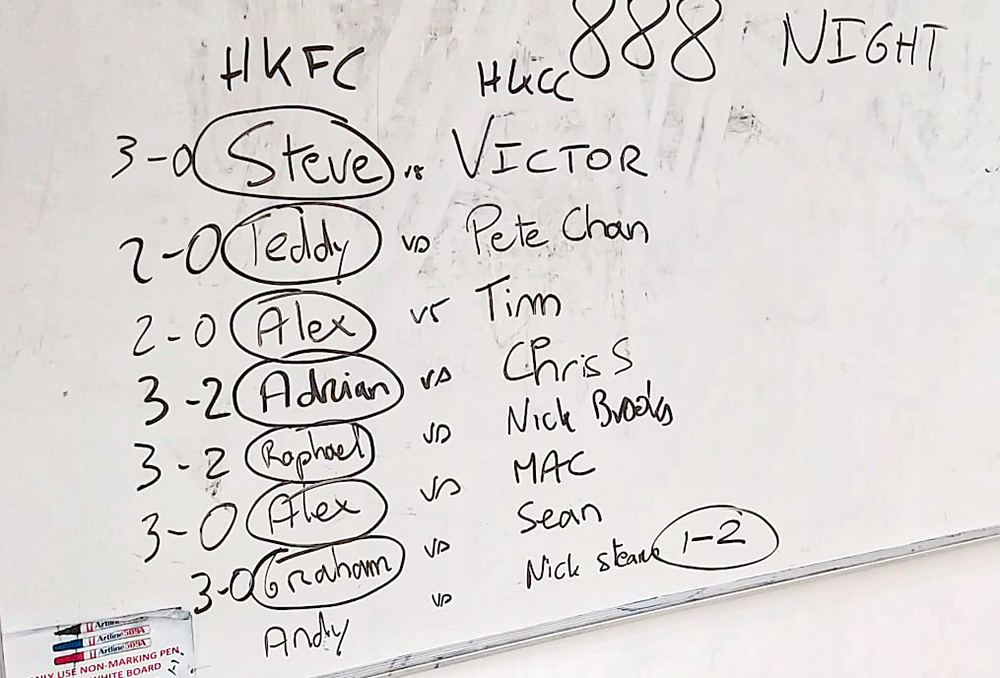 888 NIGHT
HKFC HKCC
3-0 Steve vs VICTOR
2-0 Teddy vs Pete Chan
2-0 Alex vs Tim
3-2 Adrian vs Chris S
3-2 Raphael vs Nick Brooks
3-0 Alex vs MAC
3-0 Graham vs Sean
Andy vs Nick 1-2
Artline
Artline 509A
Artline 509A
USE NON-MARKING PEN
WHITE BOARD